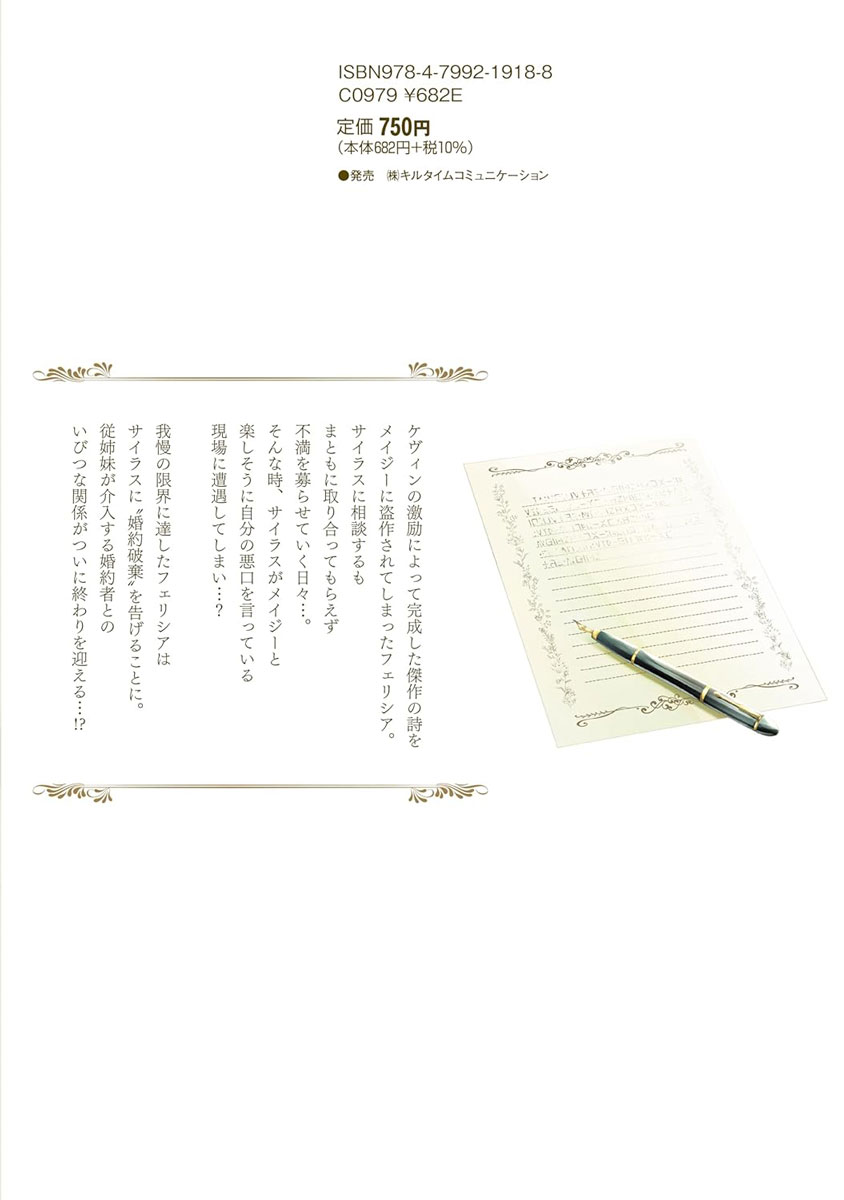 ISBN978-4-7992-1918-8
C0979 ¥682E
定価 750円
(本体682円+税10%)
●発売 ㈱キルタイムコミュニケーション
ケヴィンの激励によって完成した傑作の詩を
メイジーに盗作されてしまったフェリシア。
サイラスに相談するも
まともに取り合ってもらえず
不満を募らせていく日々…。
そんな時、サイラスがメイジーと
楽しそうに自分の悪口を言っている
現場に遭遇してしまい…?
我慢の限界に達したフェリシアは
サイラスに〝婚約破棄〟を告げることに。
従姉妹が介入する婚約者との
いびつな関係がついに終わりを迎える…!?